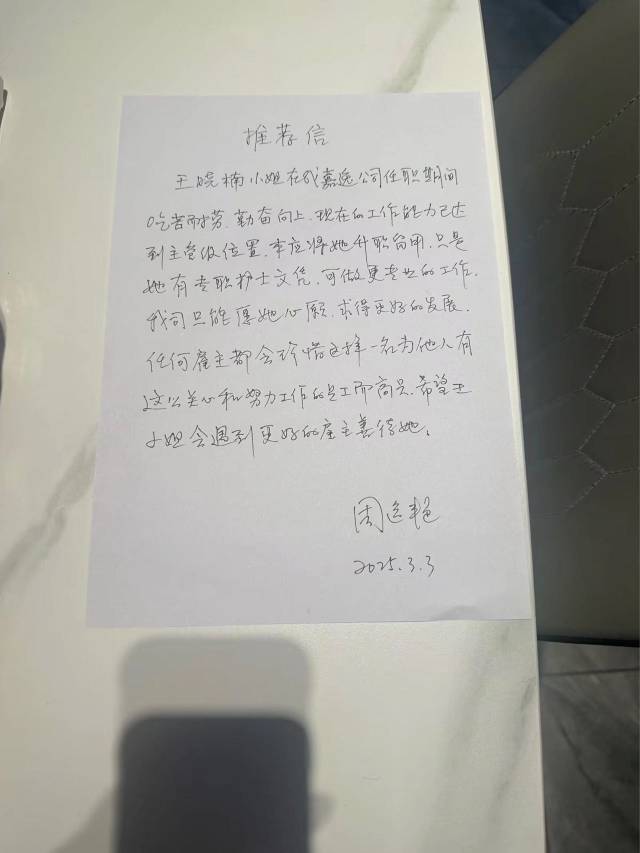 推荐信
王晓楠小姐在我嘉逸公司任职期间
吃苦耐劳、勤奋向上、现在的工作能力已达
到主管级位置,本应将她升职留用,只是
她有专职护士文凭,可做更专业的工作,
我司只能愿她心愿,求得更好的发展.
任何雇主都会珍惜这样一名为他人有
这么关心和努力工作的员工而高兴,希望王
小姐会遇到更好的雇主善待她。
周
2025.3.3